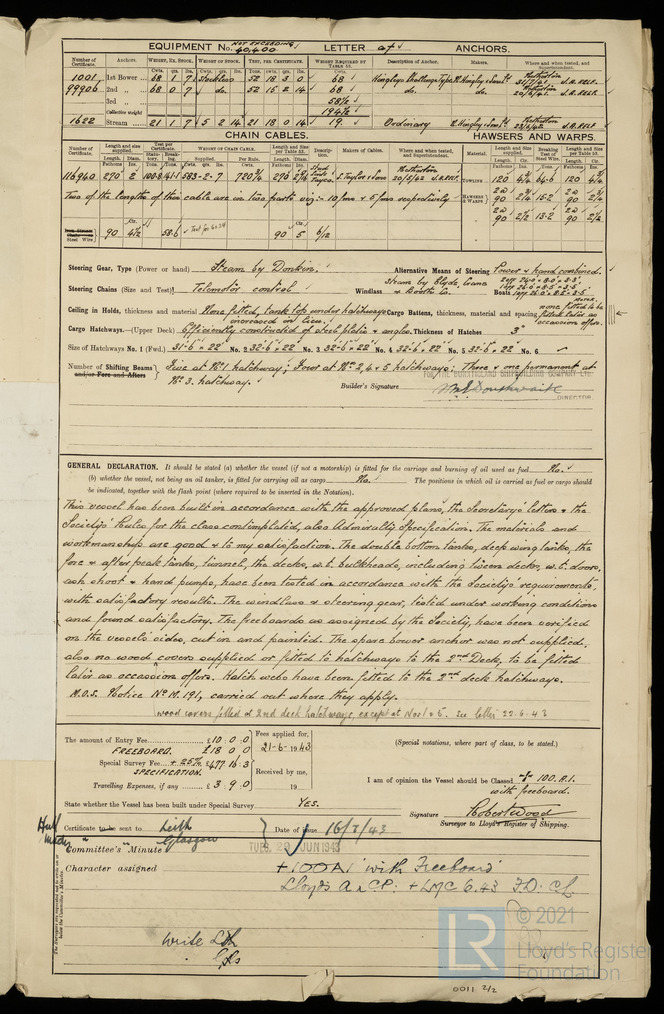 EQUIPMENT No. NOT EXCEEDING 40,400 LETTER at ANCHORS.
Number of Certificate. Anchors. Weight, Ex. Stock. Weight of Stock. Test, per Certificate. Weight Required by Table 53. Description of Anchor. Makers. Where and when tested, and Superintendent.
Cwts. qrs. lbs. Cwts. qrs. lbs. Tons. cwts. qrs. lbs. Cwts.
1001 1st Bower 68 1 7 Stockless 52 18 3 0 68 Hingleys Challenge Type N. Hingley & Sons Ld Netherton J.A. RELF.
99906 2nd „ 68 0 7 do. 52 15 2 14 68 do. do. Netherton J.A. RELF.
3rd „ 58½
Collective weight 194½
1622 Stream 21 1 7 5 2 14 21 18 0 14 19. Ordinary N. Hingley & Sons Ld Netherton 23/2/42 J.A. RELF
CHAIN CABLES. HAWSERS AND WARPS.
Number of Certificate. Length and size supplied. Test per Certificate. Weight of Chain Cable. Length and Size per Table 53. Description. Makers of Cables. Where and when tested, and Superintendent. Material. Length and size supplied. Breaking Test of Steel Wire. Length and Size per Table 53.
116940 270 2 583-2-7 720¾ 270 S. Taylor & Sons Netherton 20/5/42 J.A. RELF. Towlines 120 64.6 120
Two of the lengths of this cable are in two parts viz:- 10 fms & 5 fms respectively Hawsers & Warps 90 2¼ 15.2
90 2½ 13.2 90 2½
Steel Wire 90 4½ 58.6 90 5 6/12
Steering Gear, Type (Power or hand) Steam by Donkin. Alternative Means of Steering Power & hand combined.
Steering Chains (Size and Test) Telemotor control Windlass Steam by Clyde Crane & Booth Co. Boats
Ceiling in Holds, thickness and material None fitted, tank top under hatchways increased in lieu. Cargo Battens, thickness, material and spacing none fitted to be fitted later as occassion offers.
Cargo Hatchways.—(Upper Deck) Efficiently constructed of steel plates & angles. Thickness of Hatches 3"
Size of Hatchways No. 1 (Fwd.) 31-6 × 22 No. 2 32-6 × 22 No. 3 32-6 × 22 No. 4 32-6 × 22 No. 5 32-6 × 22 No. 6
Number of Shifting Beams and/or Fore and Afters Five at No 1 hatchway; Four at Nos 2, 4 & 5 hatchways: Three & one permanent at
No 3. hatchway.
FOR THE BURNTISLAND SHIPBUILDING COMPANY LTD.
Builder's Signature
DIRECTOR.
GENERAL DECLARATION. It should be stated (a) whether the vessel (if not a motorship) is fitted for the carriage and burning of oil used as fuel No.
(b) whether the vessel, not being an oil tanker, is fitted for carrying oil as cargo No. The positions in which oil is carried as fuel or cargo should
be indicated, together with the flash point (where required to be inserted in the Notation).
This vessel has been built in accordance with the approved plans, the Secretary's letters & the
Society's Rules for the class contemplated, also Admiralty Specification. The materials and
workmanship are good & to my satisfaction. The double bottom tanks, deep wing tanks, the
fore & after peak tanks, tunnel, the decks, w.t. bulkheads, including tween decks, w.t. doors,
ash shoot & hand pumps, have been tested in accordance with the Society's requirements,
with satisfactory results. The windlass & steering gear, tested under working conditions
and found satisfactory. The freeboards as assigned by the Society, have been verified
on the vessels sides, cut in and painted. The spare bower anchor was not supplied,
also no wood covers supplied or fitted to hatchways to the 2nd Deck, to be fitted
later as occassion offers. Hatch webs have been fitted to the 2nd deck hatchways.
M.O.S. Notice No M.191, carried out where they apply.
wood covers fitted at 2nd deck hatchways, except at Nos 1 & 5. See letter 22.6.43
The amount of Entry Fee £10 : 0 : 0 Fees applied for,
FREEBOARD. £18 0 0 21-6-1943
Special Survey Fee + 25% £477 16 : 3 Received by me,
SPECIFICATION.
Travelling Expenses, if any £ 3 : 9 : 0 19
(Special notations, where part of class, to be stated.)
I am of opinion the Vessel should be Classed + 100.A.1.
with freeboard.
State whether the Vessel has been built under Special Survey YES.
Signature Robert Wood
Surveyor to Lloyd's Register of Shipping.
Certificate to be sent to Leith Date of issue 16/7/43
Glasgow
Committee's Minute TUES. 29 JUN 1943
Character assigned +100A1 'with Freeboard'
Lloyds A & CP: + LMC 6.43 F.D. CL
Write Lth
Gls
0011 2/2
LR
© 2021
Lloyd's Register
Foundation